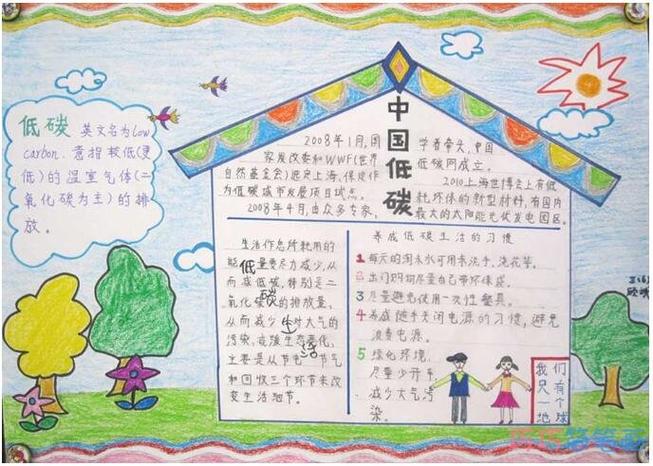 低碳 英文名为low
carbon. 意指较低(更
低)的温室气体(二
氧化碳为主)的排
放。
中国低碳
2008年1月,国
家发改委和WWF(世界
自然基金会)选定上海、保定作
为低碳城市发展项目试点。
2008年4月,由众多专家,
学者牵头,中国
低碳网成立。
2010上海世博史上有低
耗环保的新型材料,有国内
最大的太阳能光伏发电园区。
低碳生活
生活作息所耗用的
能量要尽力减少,从
而减低碳,特别是二
氧化碳的排放量,
从而减少对大气的
污染,减缓生态恶化,
主要是从节电 节气
和回收三个环节来改
变生活细节。
养成低碳生活的习惯
1 每天的淘米水可用来洗手、浇花等。
2 出门购物尽量自己带环保袋。
3 尽量避免使用一次性餐具。
4 养成随手关闭电源的习惯,避免
浪费电源。
5 绿化环境,
尽量少开车
减少大气污
染。
我们
只有
一个
地球